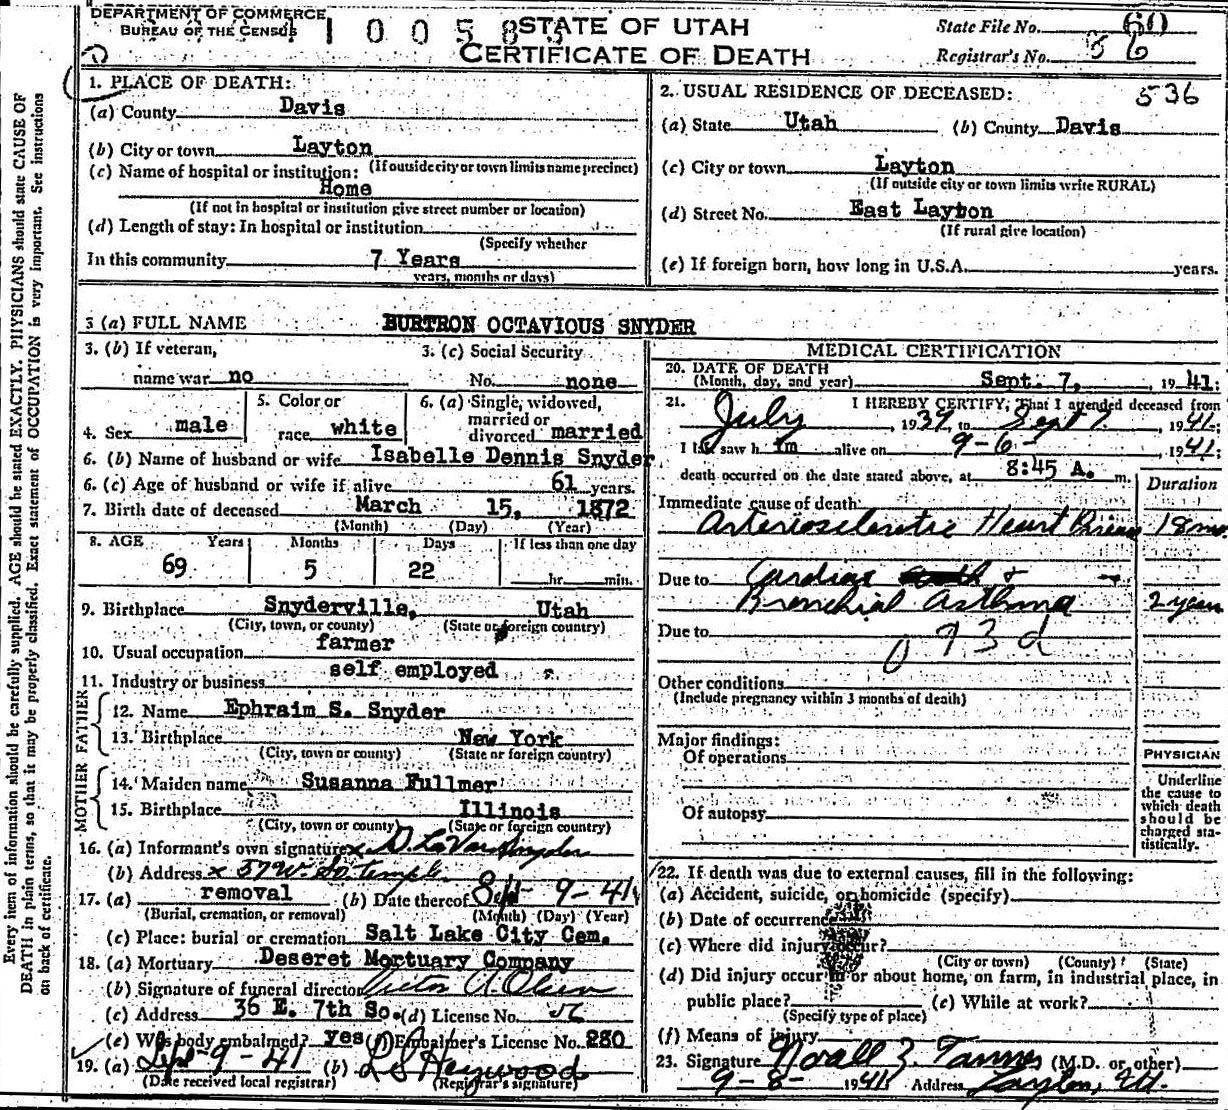 DEPARTMENT OF COMMERCE
BUREAU OF THE CENSUS
STATE OF UTAH
CERTIFICATE OF DEATH
State File No. 60
Registrar's No. 56
Every item of information should be carefully supplied. AGE should be stated EXACTLY. PHYSICIANS should state CAUSE OF
DEATH in plain terms, so that it may be properly classified. Exact statement of OCCUPATION is very important. See instructions
on back of certificate.
1. PLACE OF DEATH:
(a) County Davis
(b) City or town Layton
(If outside city or town limits name precinct)
(c) Name of hospital or institution:
Home
(If not in hospital or institution give street number or location)
(d) Length of stay: In hospital or institution
(Specify whether
In this community 7 Years
years, months or days)
2. USUAL RESIDENCE OF DECEASED: 536
(a) State Utah (b) County Davis
(c) City or town Layton
(If outside city or town limits write RURAL)
(d) Street No. East Layton
(If rural give location)
(e) If foreign born, how long in U.S.A. years.
3 (a) FULL NAME BURTRON OCTAVIOUS SNYDER
3. (b) If veteran,
name war no
3. (c) Social Security
No. none
4. Sex male
5. Color or
race white
6. (a) Single, widowed,
married or
divorced married
6. (b) Name of husband or wife Isabelle Dennis Snyder
6. (c) Age of husband or wife if alive 61 years.
7. Birth date of deceased March 15, 1872
(Month) (Day) (Year)
8. AGE Years Months Days If less than one day
69 5 22 hr. min.
9. Birthplace Snyderville, Utah
(City, town, or county) (State or foreign country)
10. Usual occupation farmer
11. Industry or business self employed
FATHER
12. Name Ephraim S. Snyder
13. Birthplace New York
(City, town or county) (State or foreign country)
MOTHER
14. Maiden name Susanna Fullmer
15. Birthplace Illinois
(City, town or county) (State or foreign country)
16. (a) Informant's own signature x D. LaVar Snyder
(b) Address x 57 W. So. Temple
17. (a) removal (b) Date thereof Sept 9-41
(Burial, cremation, or removal) (Month) (Day) (Year)
(c) Place: burial or cremation Salt Lake City Cem.
18. (a) Mortuary Deseret Mortuary Company
(b) Signature of funeral director Victor A. Olsen
(c) Address 36 E. 7th So. (d) License No. 56
(e) Was body embalmed? yes (f) Embalmer's License No. 280
19. (a) Sept-9-41 (b) L S Heywood
(Date received local registrar) (Registrar's signature)
MEDICAL CERTIFICATION
20. DATE OF DEATH
(Month, day, and year) Sept. 7, 1941.
21. I HEREBY CERTIFY, That I attended deceased from
July, 1939, to Sept 7, 1941;
I last saw him alive on 9-6-, 1941;
death occurred on the date stated above, at 8:45 A. m.
Duration
Immediate cause of death
Arteriosclerotic Heart Disease 18 mo.
Due to Cardiac &
Bronchial Asthma 2 years
Due to 093d
Other conditions
(Include pregnancy within 3 months of death)
Major findings:
Of operations
Of autopsy
PHYSICIAN
Underline
the cause to
which death
should be
charged sta-
tistically.
22. If death was due to external causes, fill in the following:
(a) Accident, suicide, or homicide (specify)
(b) Date of occurrence
(c) Where did injury occur?
(City or town) (County) (State)
(d) Did injury occur in or about home, on farm, in industrial place, in
public place? (e) While at work?
(Specify type of place)
(f) Means of injury
23. Signature Noall Z. Tanner (M.D. or other)
9-8- 1941 Address Layton, Ut.